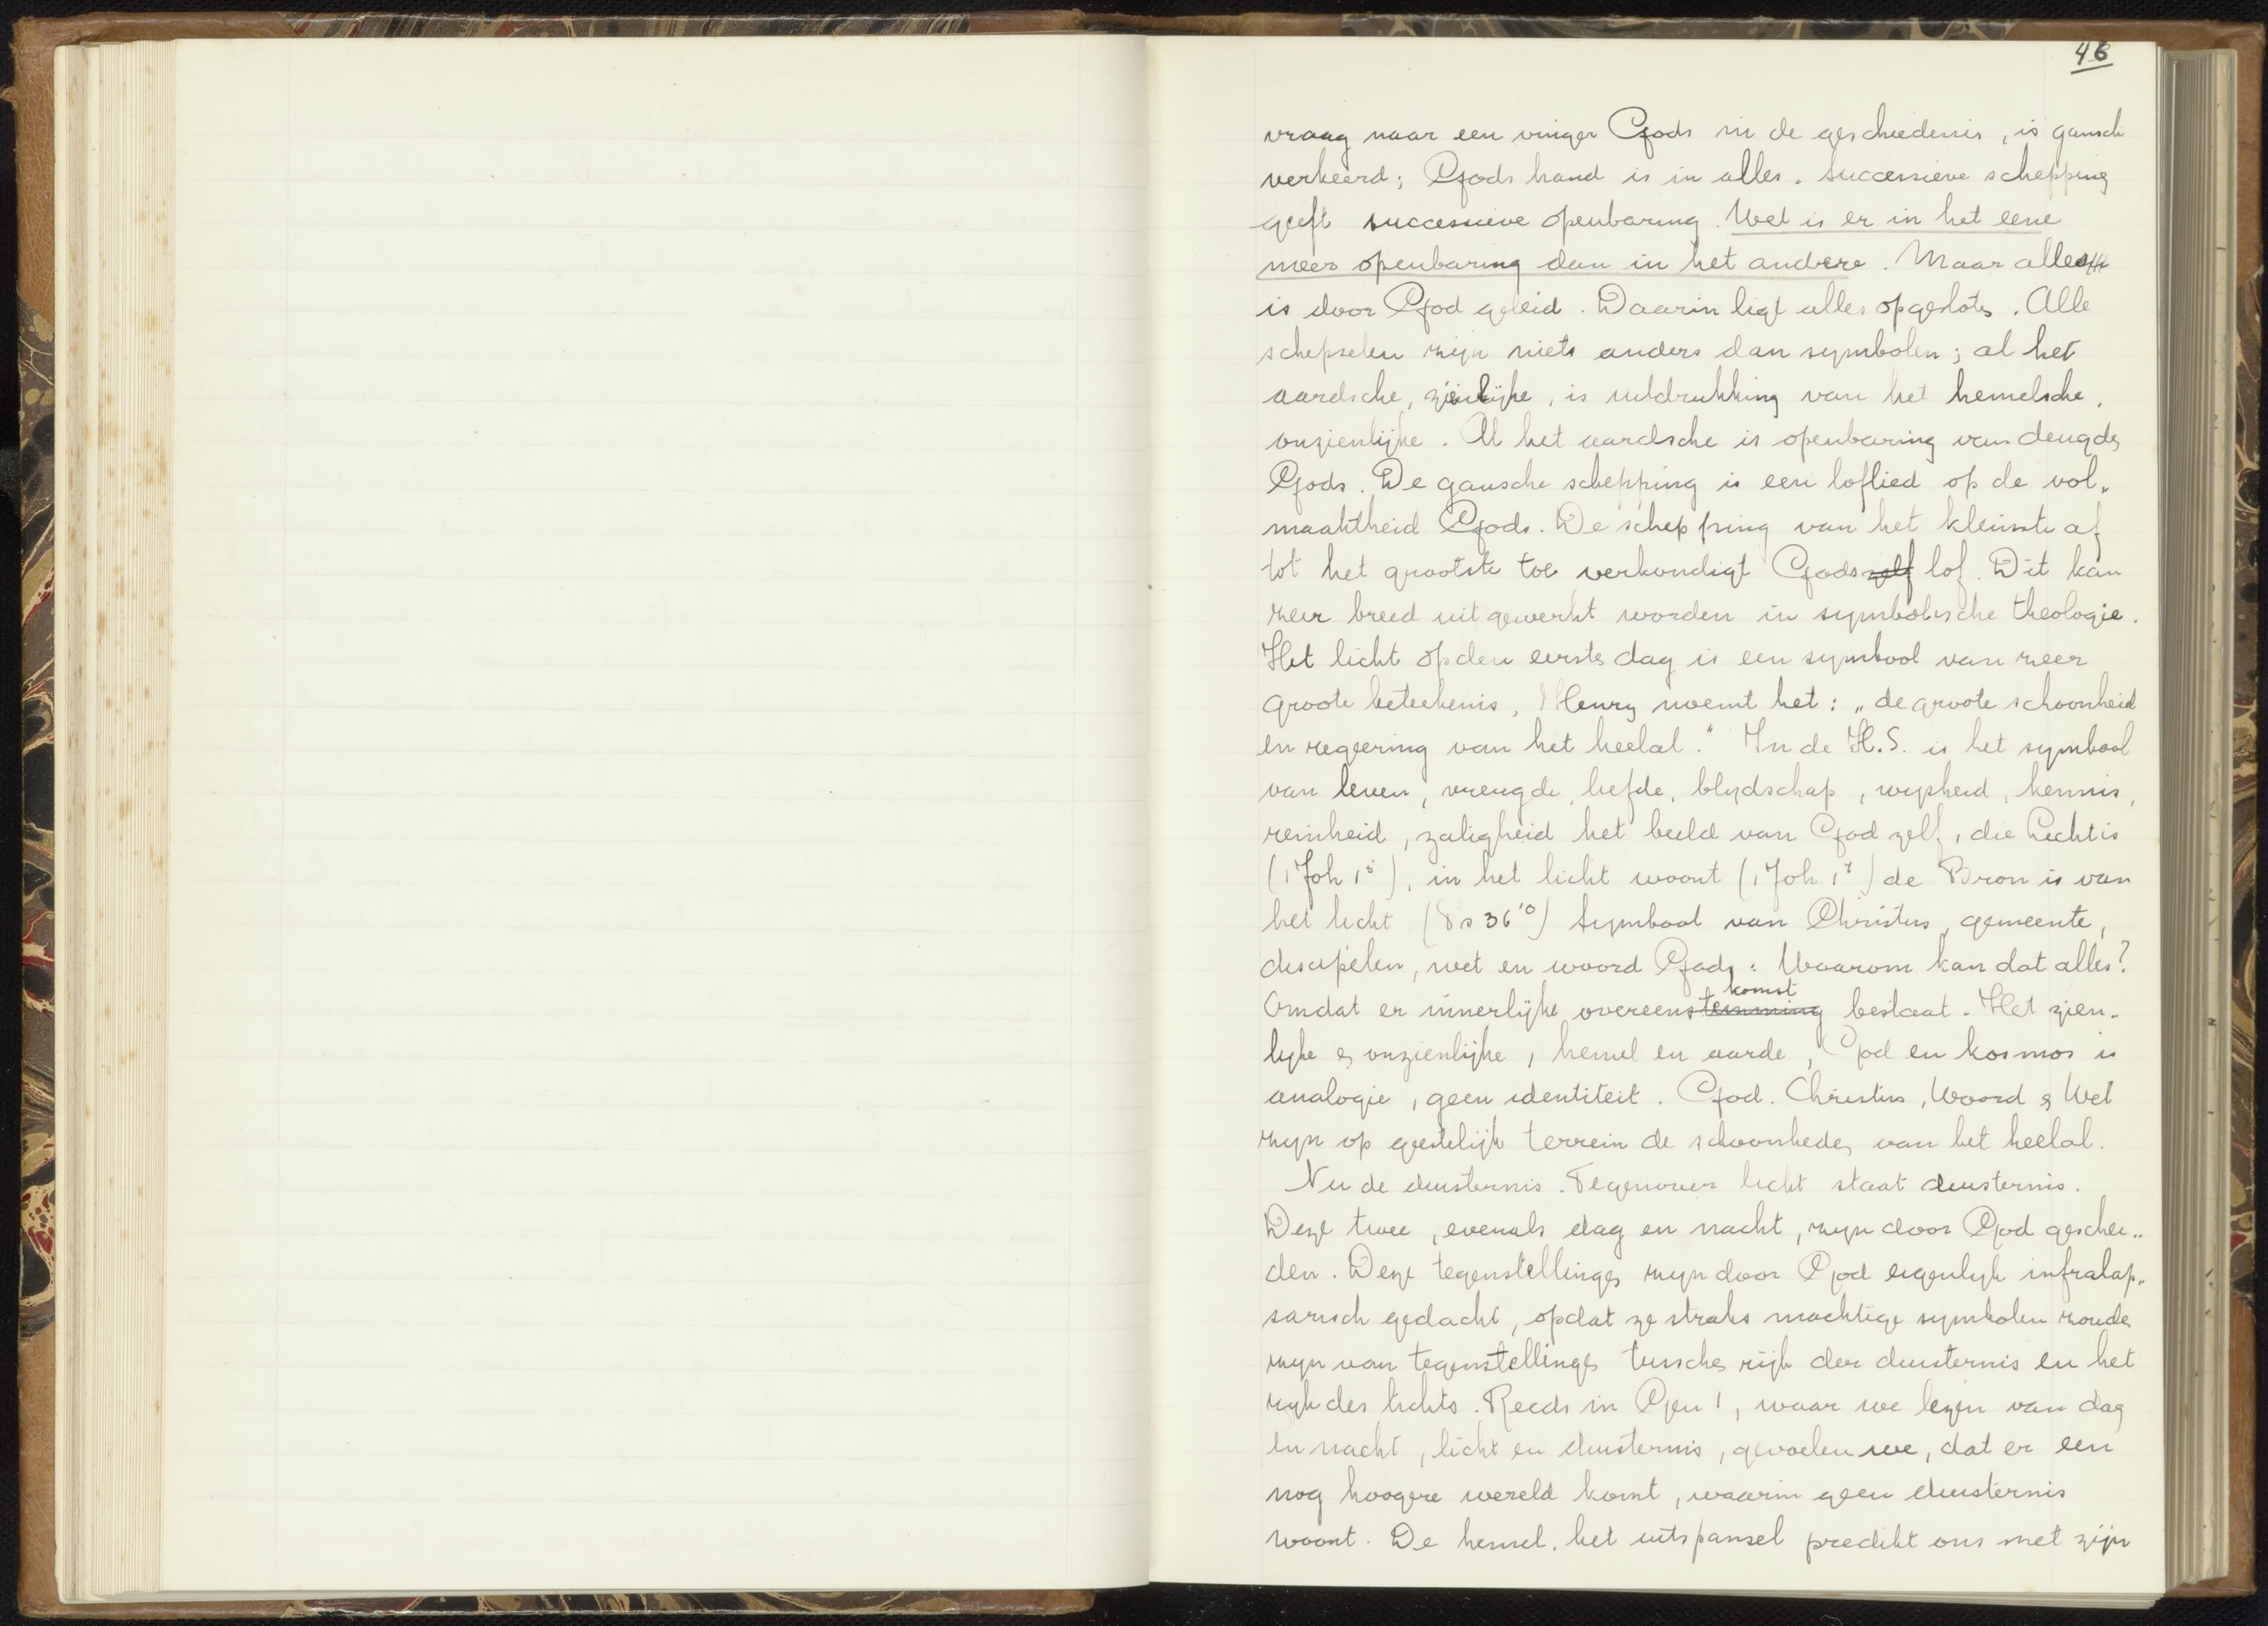 46
vraag naar een vinger Gods in de geschiedenis, is gansch
verkeerd; Gods hand is in alles. Successieve schepping
geeft successieve openbaring. Wel is er in het eene
meer openbaring dan in het andere. Maar alles
is door God geleid. Daarin ligt alles opgesloten. Alle
schepselen zijn niets anders dan symbolen; al het
aardsche, zienlijke, is uitdrukking van het hemelsche,
onzienlijke. Al het aardsche is openbaring van deugden
Gods. De gansche schepping is een loflied op de vol„
maaktheid Gods. De schepping van het kleinste af
tot het grootste toe verkondigt Gods zelf lof. Dit kan
zeer breed uitgewerkt worden in symbolische theologie.
Het licht op den eersten dag is een symbool van zeer
groote beteekenis, Henry noemt het: „de groote schoonheid
en regeering van het heelal." In de H.S. is het symbool
van leven, vreugde, liefde, blydschap, wysheid, kennis,
reinheid, zaligheid het beeld van God zelf, die Licht is
(1 Joh 1⁵), in het licht woont (1 Joh 1⁷) de Bron is van
het licht (Ps 36¹⁰) Symbool van Christus, gemeente,
discipelen, wet en woord Gods: Waarom kan dat alles?
komst
Omdat er innerlijke overeenstemming bestaat. Het zien„
lyke en onzienlijke, hemel en aarde, God en kosmos is
analogie, geen identiteit. God. Christus, Woord en Wet
zyn op geestelijk terrein de schoonheden van het heelal.
Nu de duisternis. Tegenover licht staat duisternis.
Deze twee, evenals dag en nacht, zyn door God geschei„
den. Deze tegenstellingen zyn door God eigenlyk infralap„
sarisch gedacht, opdat ze straks machtige symbolen zouden
zyn van tegenstellingen tusschen rijk der duisternis en het
ryk des lichts. Reeds in Gen 1, waar we lezen van dag
en nacht, licht en duisternis, gevoelen we, dat er een
nog hoogere wereld komt, waarin geen duisternis
woont. De hemel, het uitspansel predikt ons met zijn